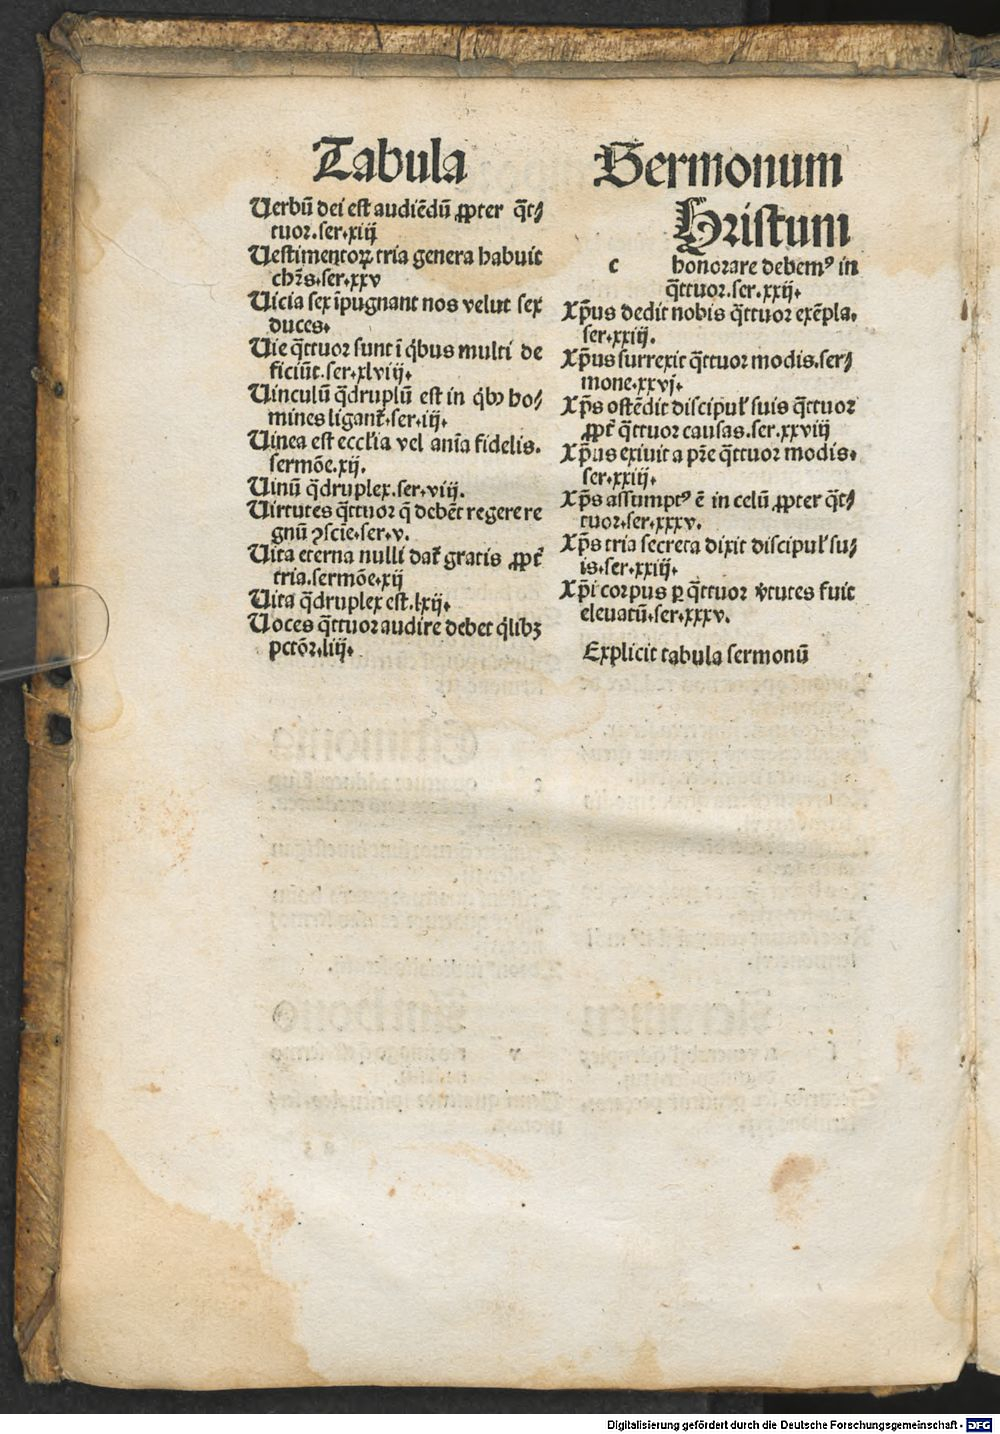 Tabula
Uerbū dei est audiēdū ꝓpter q̄t⸗
tuor.ser.xiij
Uestimentoꝝ tria genera habuit
chr̄s.ser.xxv
Uicia sex īpugnant nos velut sex
duces.
Uie q̄ttuor sunt ī q̇bus multi de
ficiūt.ser.xlviij.
Uinculū q̄druplū est in q̇bꝰ ho⸗
mines ligant̄.ser.iij.
Uinea est eccl'ia vel anīa fidelis.
sermōe.xij.
Uinū q̄druplex.ser.viij.
Uirtutes q̄ttuor q̄ debēt regere re
gnū ꝯscīe.ser.v.
Uita eterna nulli dat̄ gratis ꝓpt̄
tria.sermōe.xij
Uita q̄druplex est.lxij.
Uoces q̄ttuor audire debet q̇libꝫ
pctōꝛ.liij.
Sermonum
Hristum
c honorare debemꝰ in
q̄ttuor.ser.xxij.
Xp̄us dedit nobis q̄ttuor exēpla.
ser.xxiij.
Xp̄us surrexit q̄ttuor modis.ser⸗
mone.xxvj.
Xp̄s ostēdit discipul' suis q̄ttuor
ꝓpt̄ q̄ttuor causas.ser.xxviij
Xp̄us exiuit a pr̄e q̄ttuor modis.
ser.xxiij.
Xp̄s assumptꝰ ē in celū ꝓpter q̄t⸗
tuor.ser.xxxv.
Xp̄s tria secreta dixit discipul' su⸗
is.ser.xxiij.
Xp̄i corpus ꝑ q̄ttuor v̓tutes fuit
eleuatū.ser.xxxv.
Explicit tabula sermonū
Digitalisierung gefördert durch die Deutsche Forschungsgemeinschaft - DFG